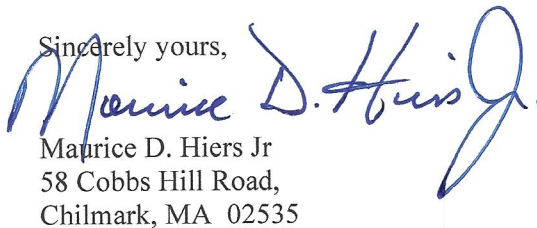 Sincerely yours,
Maurice D. Hiers Jr.
Maurice D. Hiers Jr
58 Cobbs Hill Road,
Chilmark, MA  02535